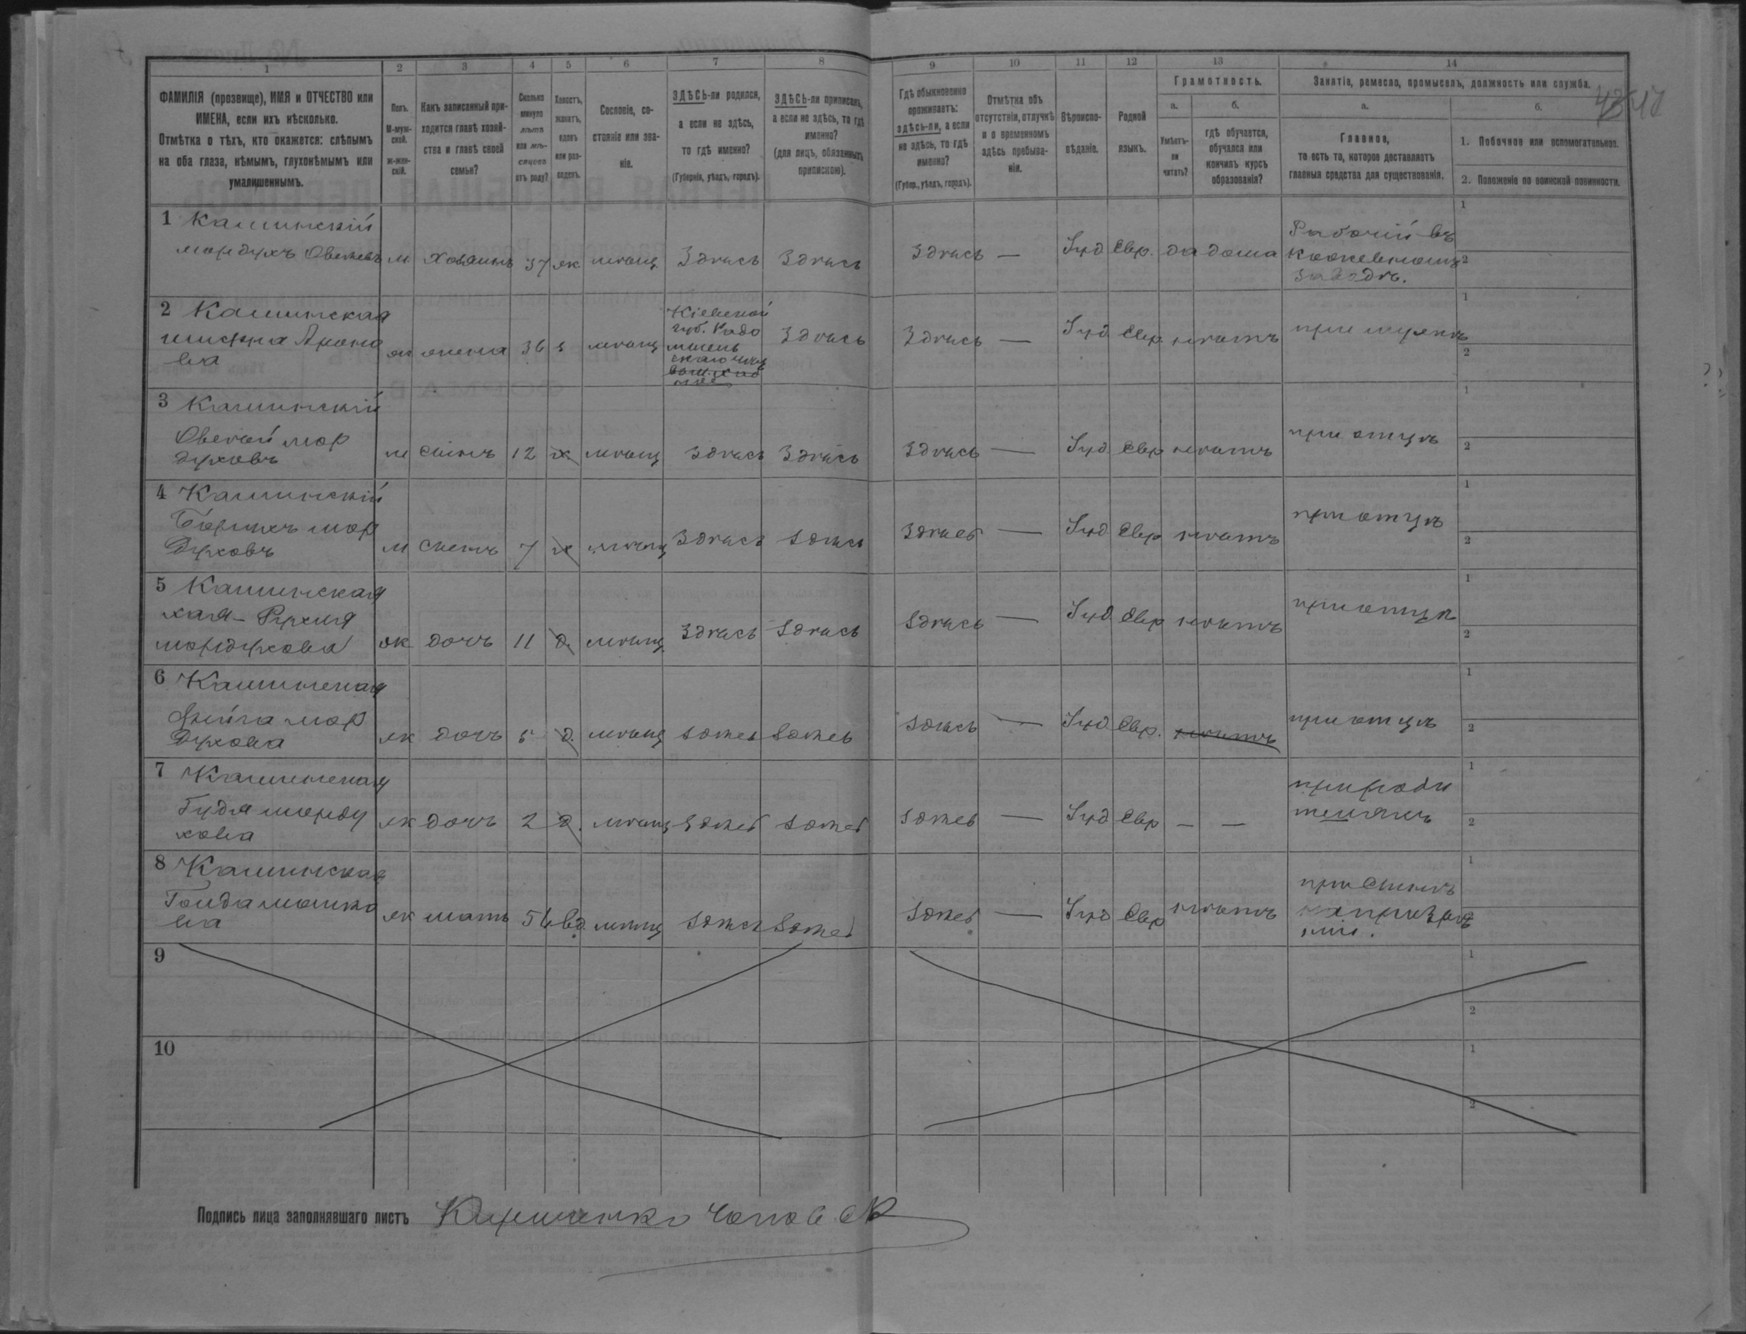 1 2 3 4 5 6 7 8
ФАМИЛІЯ (прозвище), ИМЯ и ОТЧЕСТВО или
ИМЕНА, если ихъ нѣсколько.
Отмѣтка о тѣхъ, кто окажется: слѣпымъ
на оба глаза, нѣмымъ, глухонѣмымъ или
умалишеннымъ.
Полъ.
М-муж-
ской.
Ж-жен-
скій.
Какъ записанный при-
ходится главѣ хозяй-
ства и главѣ своей
семьи?
Сколько
минуло
лѣтъ
или мѣ-
сяцевъ
отъ роду?
Холостъ,
женатъ,
вдовъ
или раз-
веденъ.
Сословіе, со-
стояніе или зва-
ніе.
ЗДѢСЬ-ли родился,
а если не здѣсь,
то гдѣ именно?
(Губернія, уѣздъ, городъ).
ЗДѢСЬ-ли приписанъ,
а если не здѣсь, то гдѣ
именно?
(для лицъ, обязанныхъ
припискою).
9 10 11 12 13 14
Гдѣ обыкновенно
проживаетъ:
здѣсь-ли, а если
не здѣсь, то гдѣ
именно?
(Губер., уѣздъ, городъ).
Отмѣтка объ
отсутствіи, отлучкѣ
и о временномъ
здѣсь пребыва-
ніи.
Вѣроиспо-
вѣданіе.
Родной
языкъ.
Грамотность.
а. б.
Умѣетъ-
ли
читать?
гдѣ обучается,
обучался или
кончилъ курсъ
образованія?
Занятіе, ремесло, промыселъ, должность или служба.
а. б.
Главное,
то есть то, которое доставляетъ
главныя средства для существованія.
1. Побочное или вспомогательное.
2. Положеніе по воинской повинности.
1 Кашинскій
Мордухъ м хозяинъ 37 ж мѣщ Здѣсь Здѣсь Здѣсь — Іуд Евр. да дома Рабочій въ
заводѣ.
1
2
2 Кашинская
Арано
ва ж жена 36 мѣщ
Кіевской
губ. Радо
мысль
Здѣсь Здѣсь — Іуд Евр нѣтъ при мужѣ
1
2
3 Кашинскій
Овсей Мор
духовъ м сынъ 12 х мѣщ Здѣсь Здѣсь Здѣсь — Іуд Евр нѣтъ при отцѣ
1
2
4 Кашинскій
Мор
духовъ м сынъ 7 х мѣщ Здѣсь Здѣсь Здѣсь — Іуд Евр нѣтъ при отцѣ
1
2
5 Кашинская
Хая-Рухля
Мордухова ж дочь 11 д мѣщ Здѣсь Здѣсь Здѣсь — Іуд Евр нѣтъ при отцѣ
1
2
6 Кашинская
Фейга Мор
духова ж дочь 5 д мѣщ Здѣсь Здѣсь Здѣсь — Іуд Евр. нѣтъ при отцѣ
1
2
7 Кашинская
Гудя Морду
хова ж дочь 2 д. мѣщ Здѣсь Здѣсь Здѣсь — Іуд Евр — — при роди
теляхъ
1
2
8 Кашинская
Мошко
ва ж мать вд. мѣщ Здѣсь Здѣсь Здѣсь — Іуд Евр нѣтъ при сынѣ
1
2
9
1
2
10
1
2
Подпись лица заполнявшаго листъ